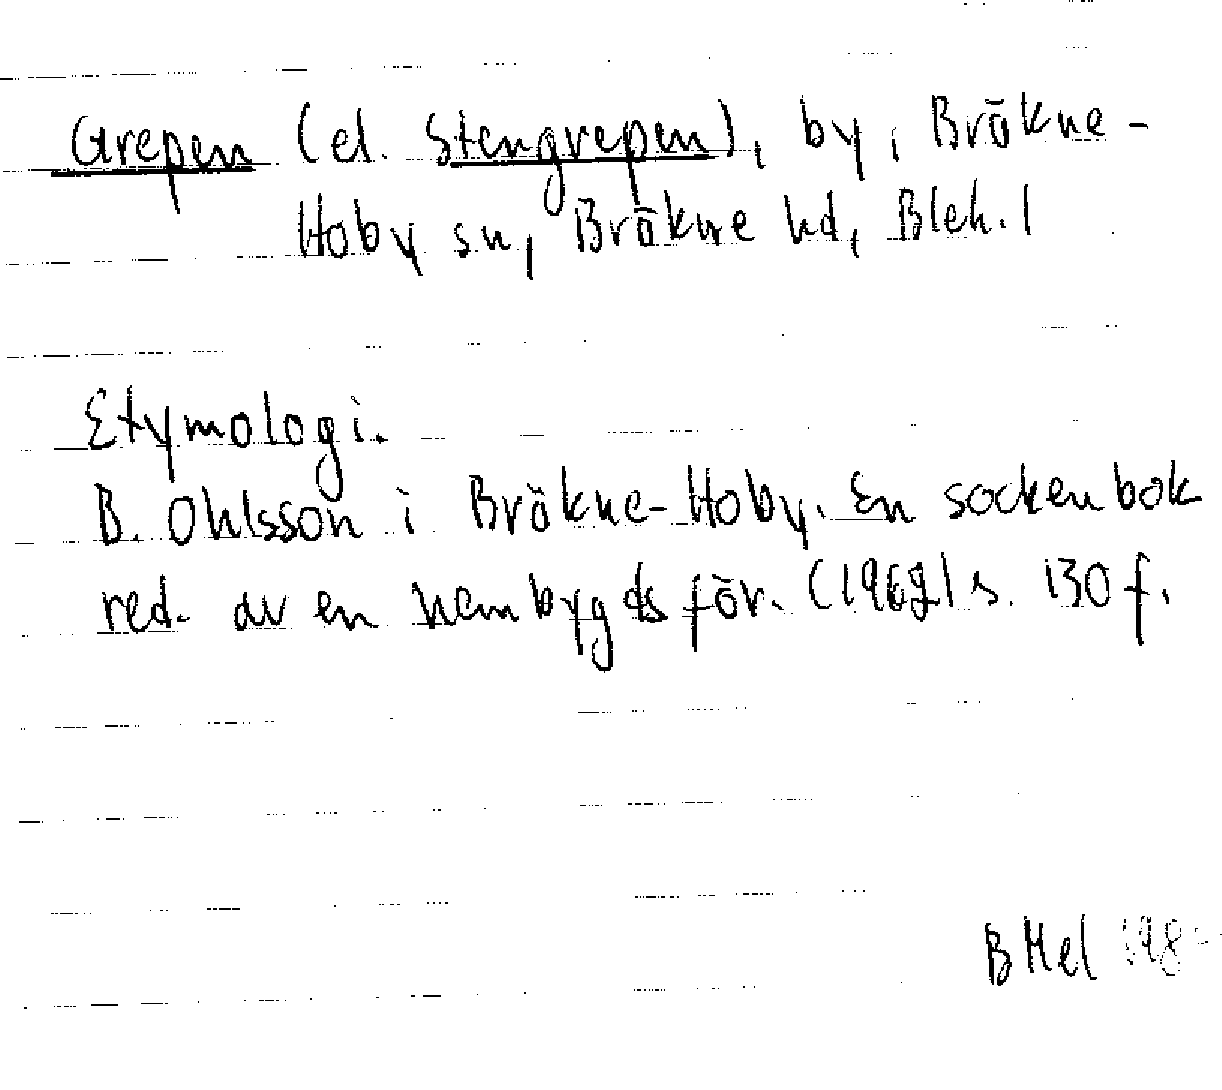 Grepen (el. Stengrepen), by, Bräkne-
Hoby sn, Bräkne hd, Blek. l
Etymologi.
B. Ohlsson i Bräkne-Hoby. En sockenbok
red. av en hembygdsför. (1962) s. 130 f.
B Hel